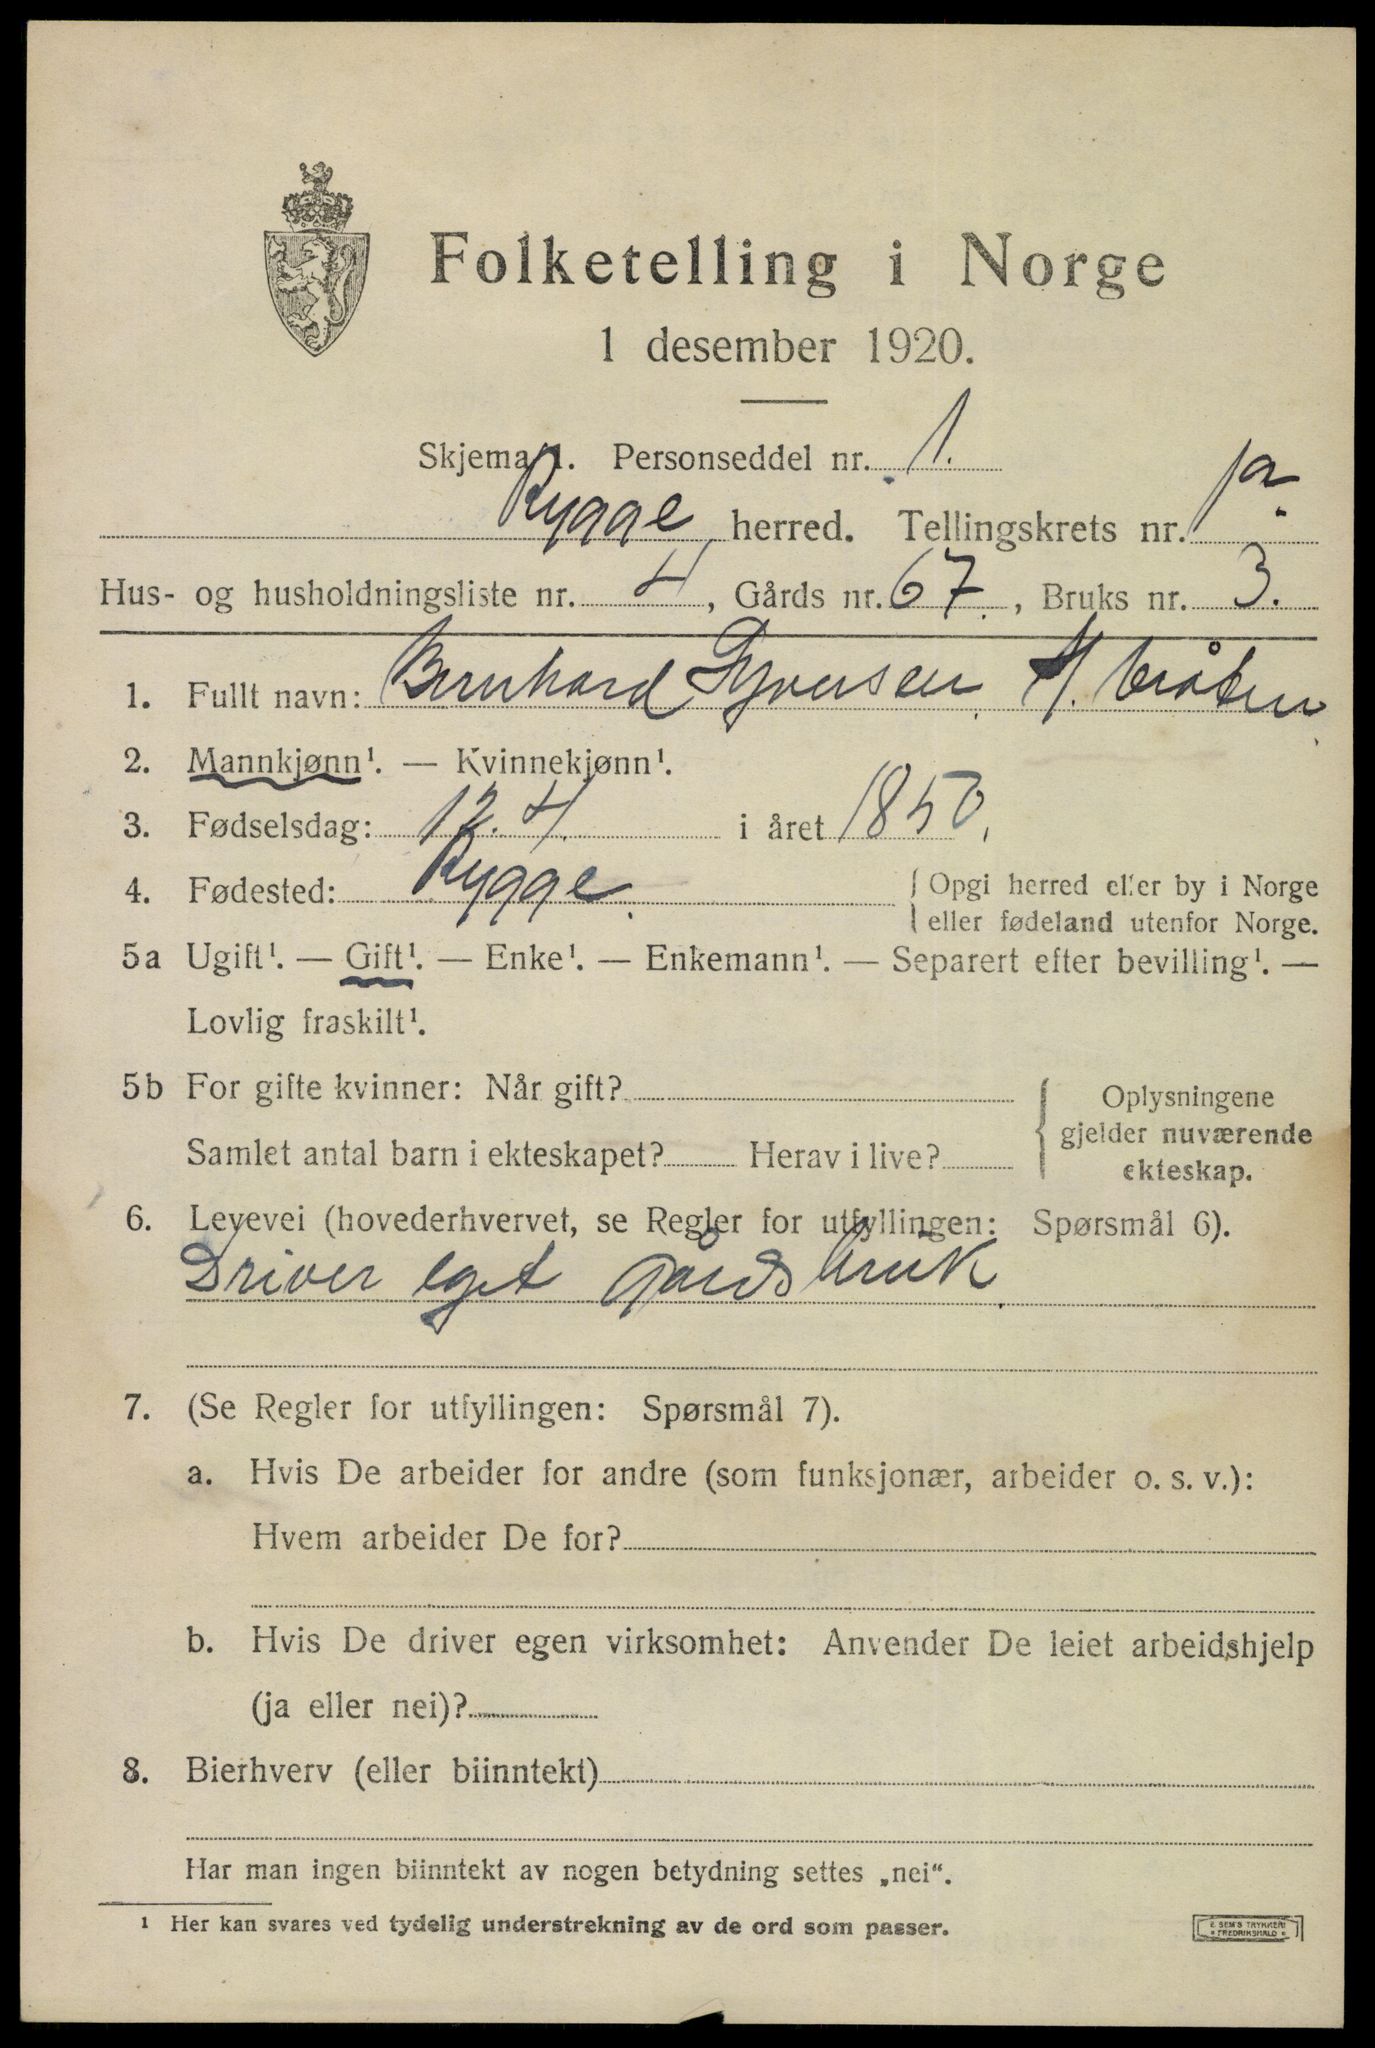 Folketelling i Norge
1 desember 1920.
Skjema 1. Personseddel nr. 1.
Rygge herred. Tellingskrets nr.
Hus- og husholdningsliste nr. 4, Gårds nr. 67., Bruks nr. 3.
1. Fullt navn: Bernhard Syversen
2. Mannkjønn¹. — Kvinnekjønn¹.
3. Fødselsdag: 12.4. i året 1850.
4. Fødested: Rygge. Opgi herred eller by i Norge
eller fødeland utenfor Norge.
5a Ugift¹. — Gift¹. — Enke¹. — Enkemann¹. — Separert efter bevilling¹. —
Lovlig fraskilt¹.
5b For gifte kvinner: Når gift? Oplysningene
gjelder nuværende
Samlet antal barn i ekteskapet? Herav i live?
ekteskap.
6. Levevei (hovederhvervet, se Regler for utfyllingen: Spørsmål 6).
Driver eget gårdsbruk
7. (Se Regler for utfyllingen: Spørsmål 7).
a. Hvis De arbeider for andre (som funksjonær, arbeider o. s. v.):
Hvem arbeider De for?
b. Hvis De driver egen virksomhet: Anvender De leiet arbeidshjelp
(ja eller nei)?
8. Bierhverv (eller biinntekt)
Har man ingen biinntekt av nogen betydning settes „nei“.
¹ Her kan svares ved tydelig understrekning av de ord som passer.
E. SEM'S TRYKKERI
• FREDRIKSHALD •